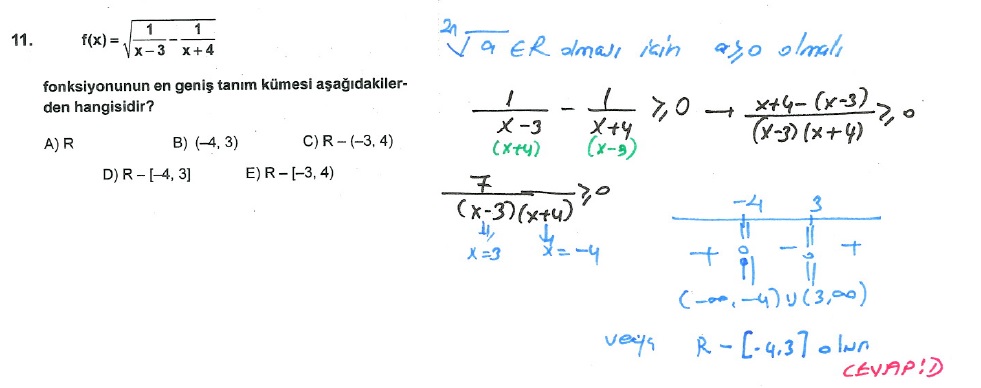 11. f(x) = √(1/(x – 3) – 1/(x + 4))
fonksiyonunun en geniş tanım kümesi aşağıdakiler-
den hangisidir?
A) R B) (–4, 3) C) R – (–3, 4)
D) R – [–4, 3] E) R – [–3, 4)
²ⁿ√a ∈ R olması için a ≥ 0 olmalı
1/(x-3) - 1/(x+4) ≥ 0 → (x+4-(x-3))/((x-3)(x+4)) ≥ 0
(x+4) (x-3)
7/((x-3)(x+4)) ≥ 0
x=3 x=-4
-4 3
+ - +
(-∞, -4) ∪ (3, ∞)
veya R - [-4,3] olur
CEVAP: D